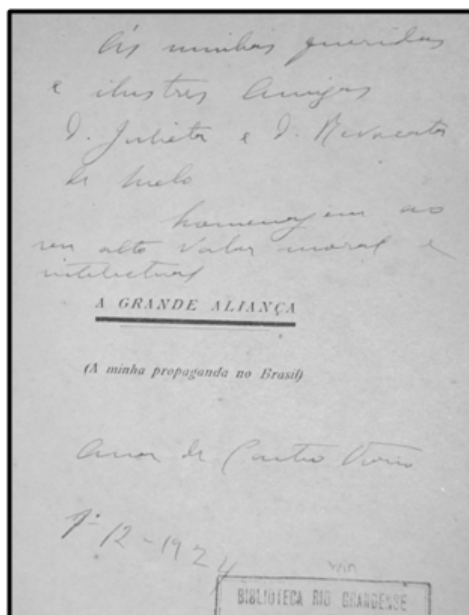 Ás minhas queridas
e ilustres Amigas
D. Julieta e D. Revocata
de Melo
homenagem ao
seu alto valor moral e
intelectual
A GRANDE ALIANÇA
(A minha propaganda no Brasil)
Anna de Castro Osorio
1º-12-1924
BIBLIOTECA RIO GRANDENSE